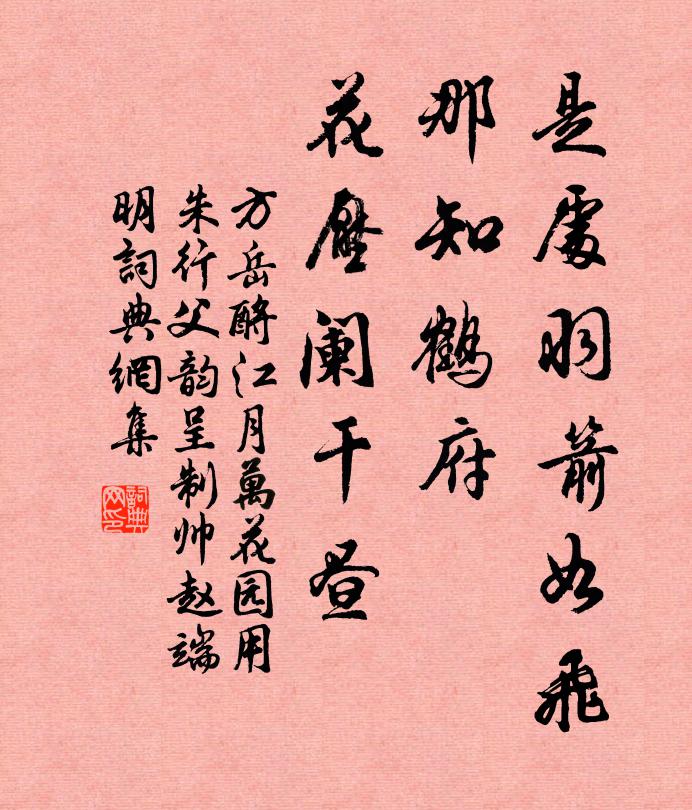 是處羽箭如飛
那知鹤府
花壓阑干晝
方岳酹江月萬花园用
朱行父韵呈制帅赵端
明詞典網集
詞典网印